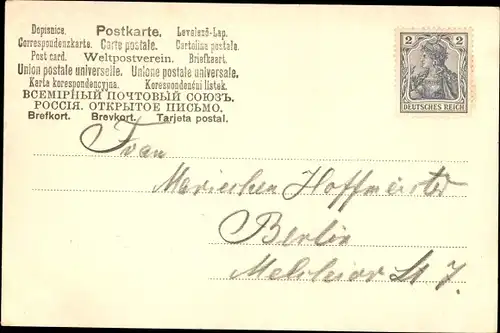 Dopisnice. Postkarte. Levelező-Lap.
Correspondenzkarte. Carte postale. Cartolina postale.
Post card. Weltpostverein. Briefkaart.
Union postale universelle. Unione postale universale.
Karta korespondencyjna. Korespondenční listek.
ВСЕМІРНЫЙ ПОЧТОВЫЙ СОЮЗЪ.
РОССІЯ. ОТКРЫТОЕ ПИСЬМО.
Brefkort. Brevkort. Tarjeta postal.
2 2
DEUTSCHES REICH
Frau
Mariechen Hoffmeister
Berlin
Melchior St 7.